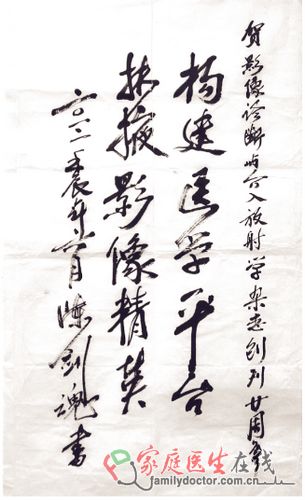 贺影像诊断与介入放射学杂志创刊廿周年
构建医学平台
扶掖影像精英
二〇一二壬辰年六月 陈剑魂书
家庭医生在线
familydoctor.com.cn